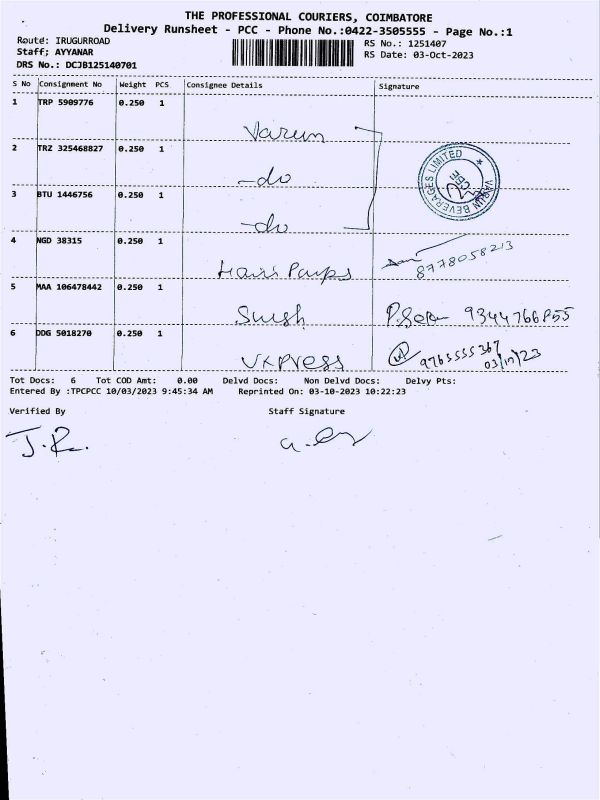 THE PROFESSIONAL COURIERS, COIMBATORE
Delivery Runsheet - PCC - Phone No.:0422-3505555 - Page No.:1
Route: IRUGURROAD
RS No.: 1251407
Staff; AYYANAR
RS Date: 03-Oct-2023
DRS No.: DCJB125140701
S No Consignment No Weight PCS Consignee Details Signature
1 TRP 5909776 0.250 1 Varun
2 TRZ 325468827 0.250 1 -do
VARUN BEVERAGES LIMITED
CBE
3 BTU 1446756 0.250 1 -do
4 NGD 38315 0.250 1 8778058213
5 MAA 106478442 0.250 1 9344766855
6 DDG 5018270 0.250 1 VXPRESS 9765555367
03/10/23
Tot Docs: 6 Tot COD Amt: 0.00 Delvd Docs: Non Delvd Docs: Delvy Pts:
Entered By :TPCPCC 10/03/2023 9:45:34 AM Reprinted On: 03-10-2023 10:22:23
Verified By Staff Signature
J.R.